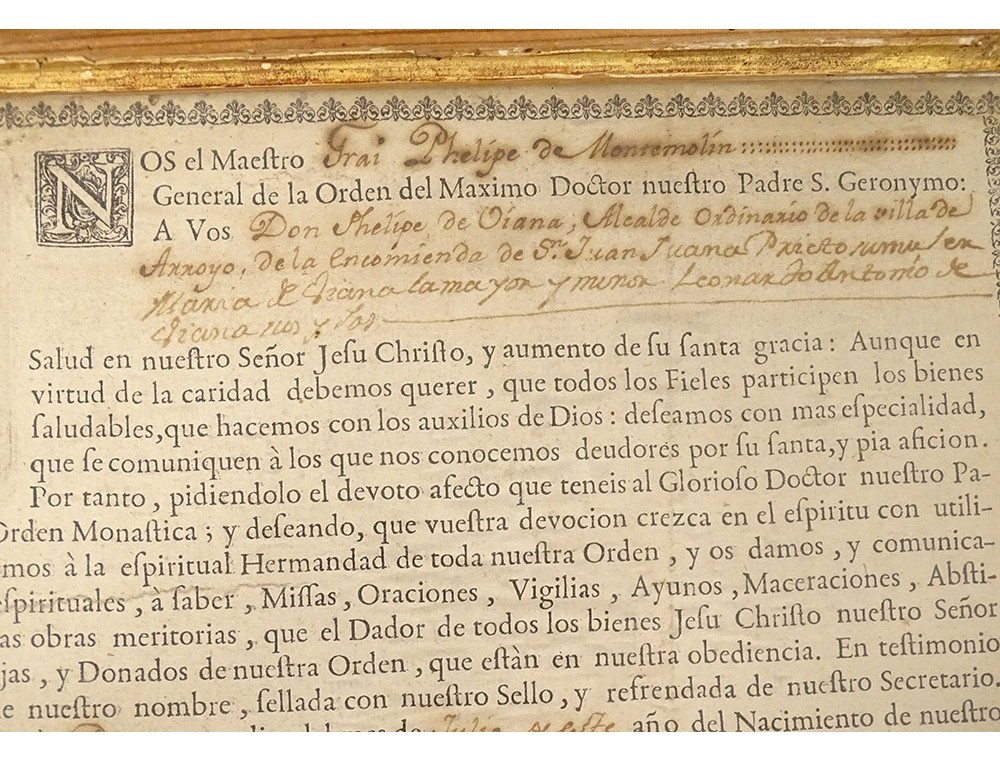 NOS el Maeſtro Frai Phelipe de Montemolin
General de la Orden del Maximo Doctor nueſtro Padre S. Geronymo:
A Vos Don Phelipe de Viana, Alcalde Ordinario de la villa de
Arroyo, de la Encomienda de Sn. Juan Juana Prieto su muger
Maria de Viana la mayor y menor Leonardo Antonio de
Viana
Salud en nueſtro Señor Jeſu Chriſto, y aumento de ſu ſanta gracia: Aunque en
virtud de la caridad debemos querer, que todos los Fieles participen los bienes
ſaludables, que hacemos con los auxilios de Dios: deſeamos con mas eſpecialidad,
que ſe comuniquen à los que nos conocemos deudores por ſu ſanta, y pia aficion.
Por tanto, pidiendolo el devoto afecto que teneis al Glorioſo Doctor nueſtro Pa-
Orden Monaſtica; y deſeando, que vueſtra devocion crezca en el eſpiritu con utili-
mos à la eſpiritual Hermandad de toda nueſtra Orden, y os damos, y comunica-
eſpirituales, à ſaber, Miſſas, Oraciones, Vigilias, Ayunos, Maceraciones, Abſti-
as obras meritorias, que el Dador de todos los bienes Jeſu Chriſto nueſtro Señor
jas, y Donados de nueſtra Orden, que eſtàn en nueſtra obediencia. En teſtimonio
e nueſtro nombre, ſellada con nueſtro Sello, y refrendada de nueſtro Secretario.
Julio año del Nacimiento de nueſtro